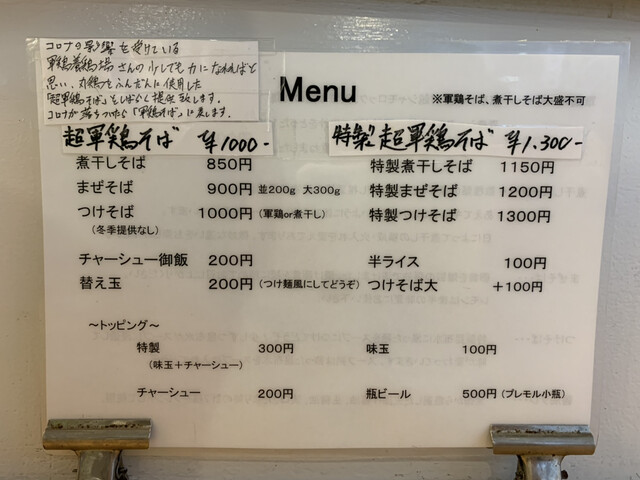 コロナの影響を受けている
軍鶏養鶏場さんの少しでも力になれればと
思い、丸鶏をふんだんに使用した
「超軍鶏そば」をしばらく提供致します。
コロナが落ちついたら「軍鶏そば」に戻します。
Menu
※軍鶏そば、煮干しそば大盛不可
超軍鶏そば ¥1000-
特製超軍鶏そば ¥1.300-
煮干しそば 850円
特製煮干しそば 1150円
まぜそば 900円 並200g 大300g
特製まぜそば 1200円
つけそば 1000円 (軍鶏or煮干し)
特製つけそば 1300円
(冬季提供なし)
チャーシュー御飯 200円
半ライス 100円
替え玉 200円 (つけ麺風にしてどうぞ)
つけそば大 +100円
～トッピング～
特製 300円
味玉 100円
(味玉+チャーシュー)
チャーシュー 200円
瓶ビール 500円 (プレモル小瓶)